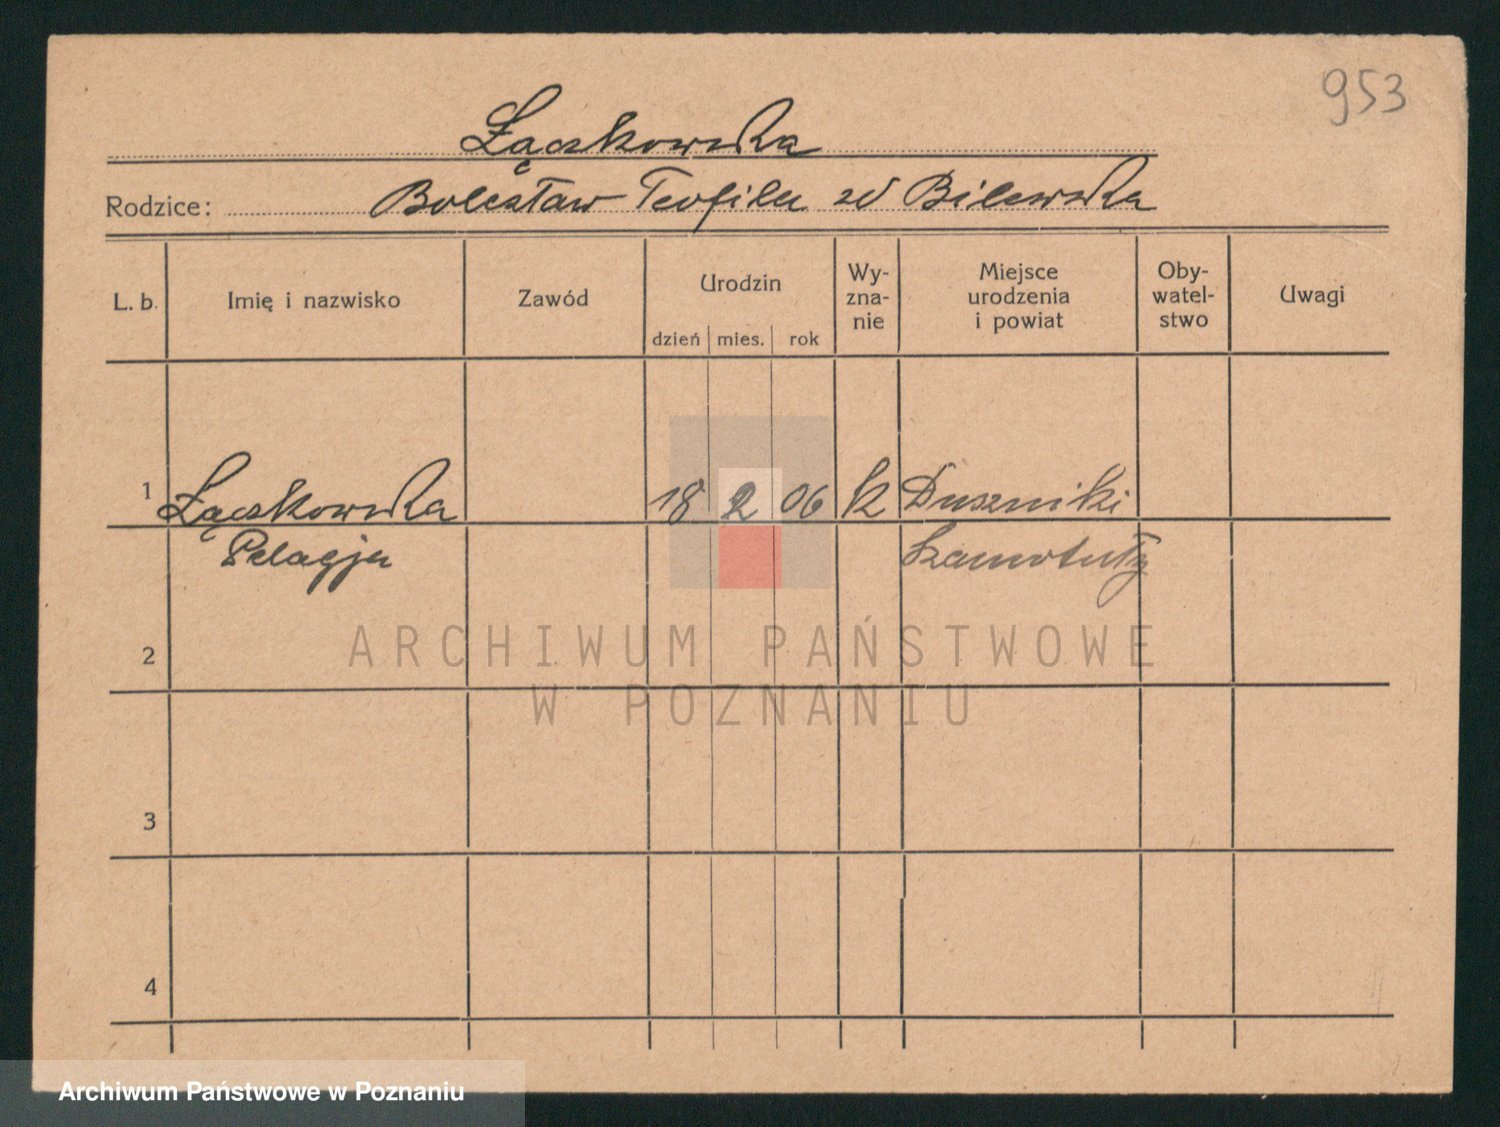 953
Łączkowska
Rodzice: Bolesław Teofila zd Bilewska
L. b. Imię i nazwisko Zawód Urodzin dzień mies. rok Wy-zna-nie Miejsce urodzenia i powiat Oby-watel-stwo Uwagi
1 Łączkowska 18 2 06 k Duszniki
Pelagja Szamotuły
2
ARCHIWUM PAŃSTWOWE
W POZNANIU
3
4
Archiwum Państwowe w Poznaniu